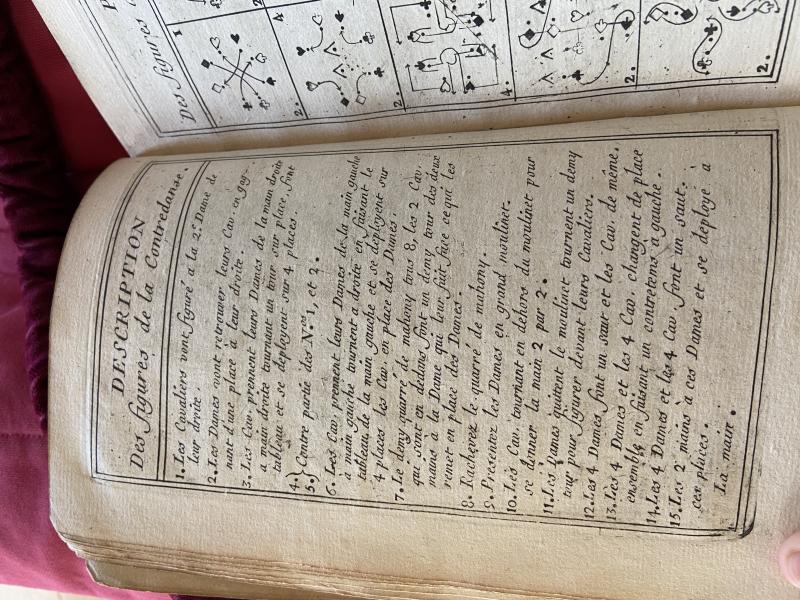 DESCRIPTION
Des figures de la Contredanse.
1. Les Cavaliers vont figuré a la 2.e Dame de
leur droite.
2. Les Dames vont retrouver leurs Cav. en gag-
nant d'une place a leur droite.
3. Les Cav. prennent leurs Dames de la main droite
a main droite tournant un tour sur place, font
tableau et se deployent sur 4 places.
4.) Contre partie des N.res 1, et 2.
5.)
6. Les Cav. prennent leurs Dames de la main gauche
a main gauche tournent a droite en faisant le
tableau de la main gauche et se deployent sur
4 places les Cav. en place des Dames.
7. Le demy quarré de mahony tous 8, les 2 Cav.
qui sont en dedans font un demy tour des deux
mains a la Dame qui leur fait face ce qui les
remet en place des Dames.
8. Rachevez le quarré de mahony.
9. Presentez les Dames en grand moulinet.
10. Les Cav. tournant en dehors du moulinet pour
se donner la main 2 par 2.
11. Les Dames quittent le moulinet tournent un demy
tour pour figurer devant leurs Cavaliers.
12. Les 4 Dames font un saut et les Cav. de même.
13. Les 4 Dames et les 4 Cav. changent de place
ensemble en faisant un contretems a gauche.
14. Les 4 Dames et les 4 Cav. font un saut.
15. Les 2 mains a ces Dames et se deploye a
ces places.
La main.
Des figures
1
2.
2.
4
4.
2.
2.